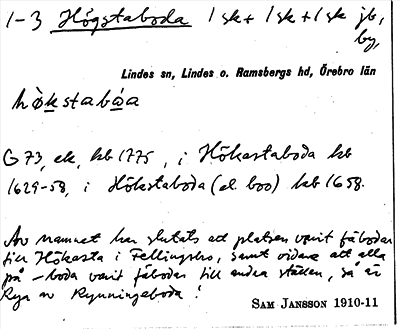 1-3 Högstaboda 1 sk + 1 sk + 1 sk jb,
by,
Lindes sn, Lindes o. Ramsbergs hd, Örebro län
G 73, ek, kb 1775, i Hökastaboda kb
1629-58, i Hökstaboda (el. boo) kb 1658.
Av namnet har slutats att platsen varit fäbodar
till Hökasta i Fellingsbro, samt vidare att alla
på -boda varit fäbodar till andra ställen, så är
Rya av Rynningeboda!
SAM JANSSON 1910-11